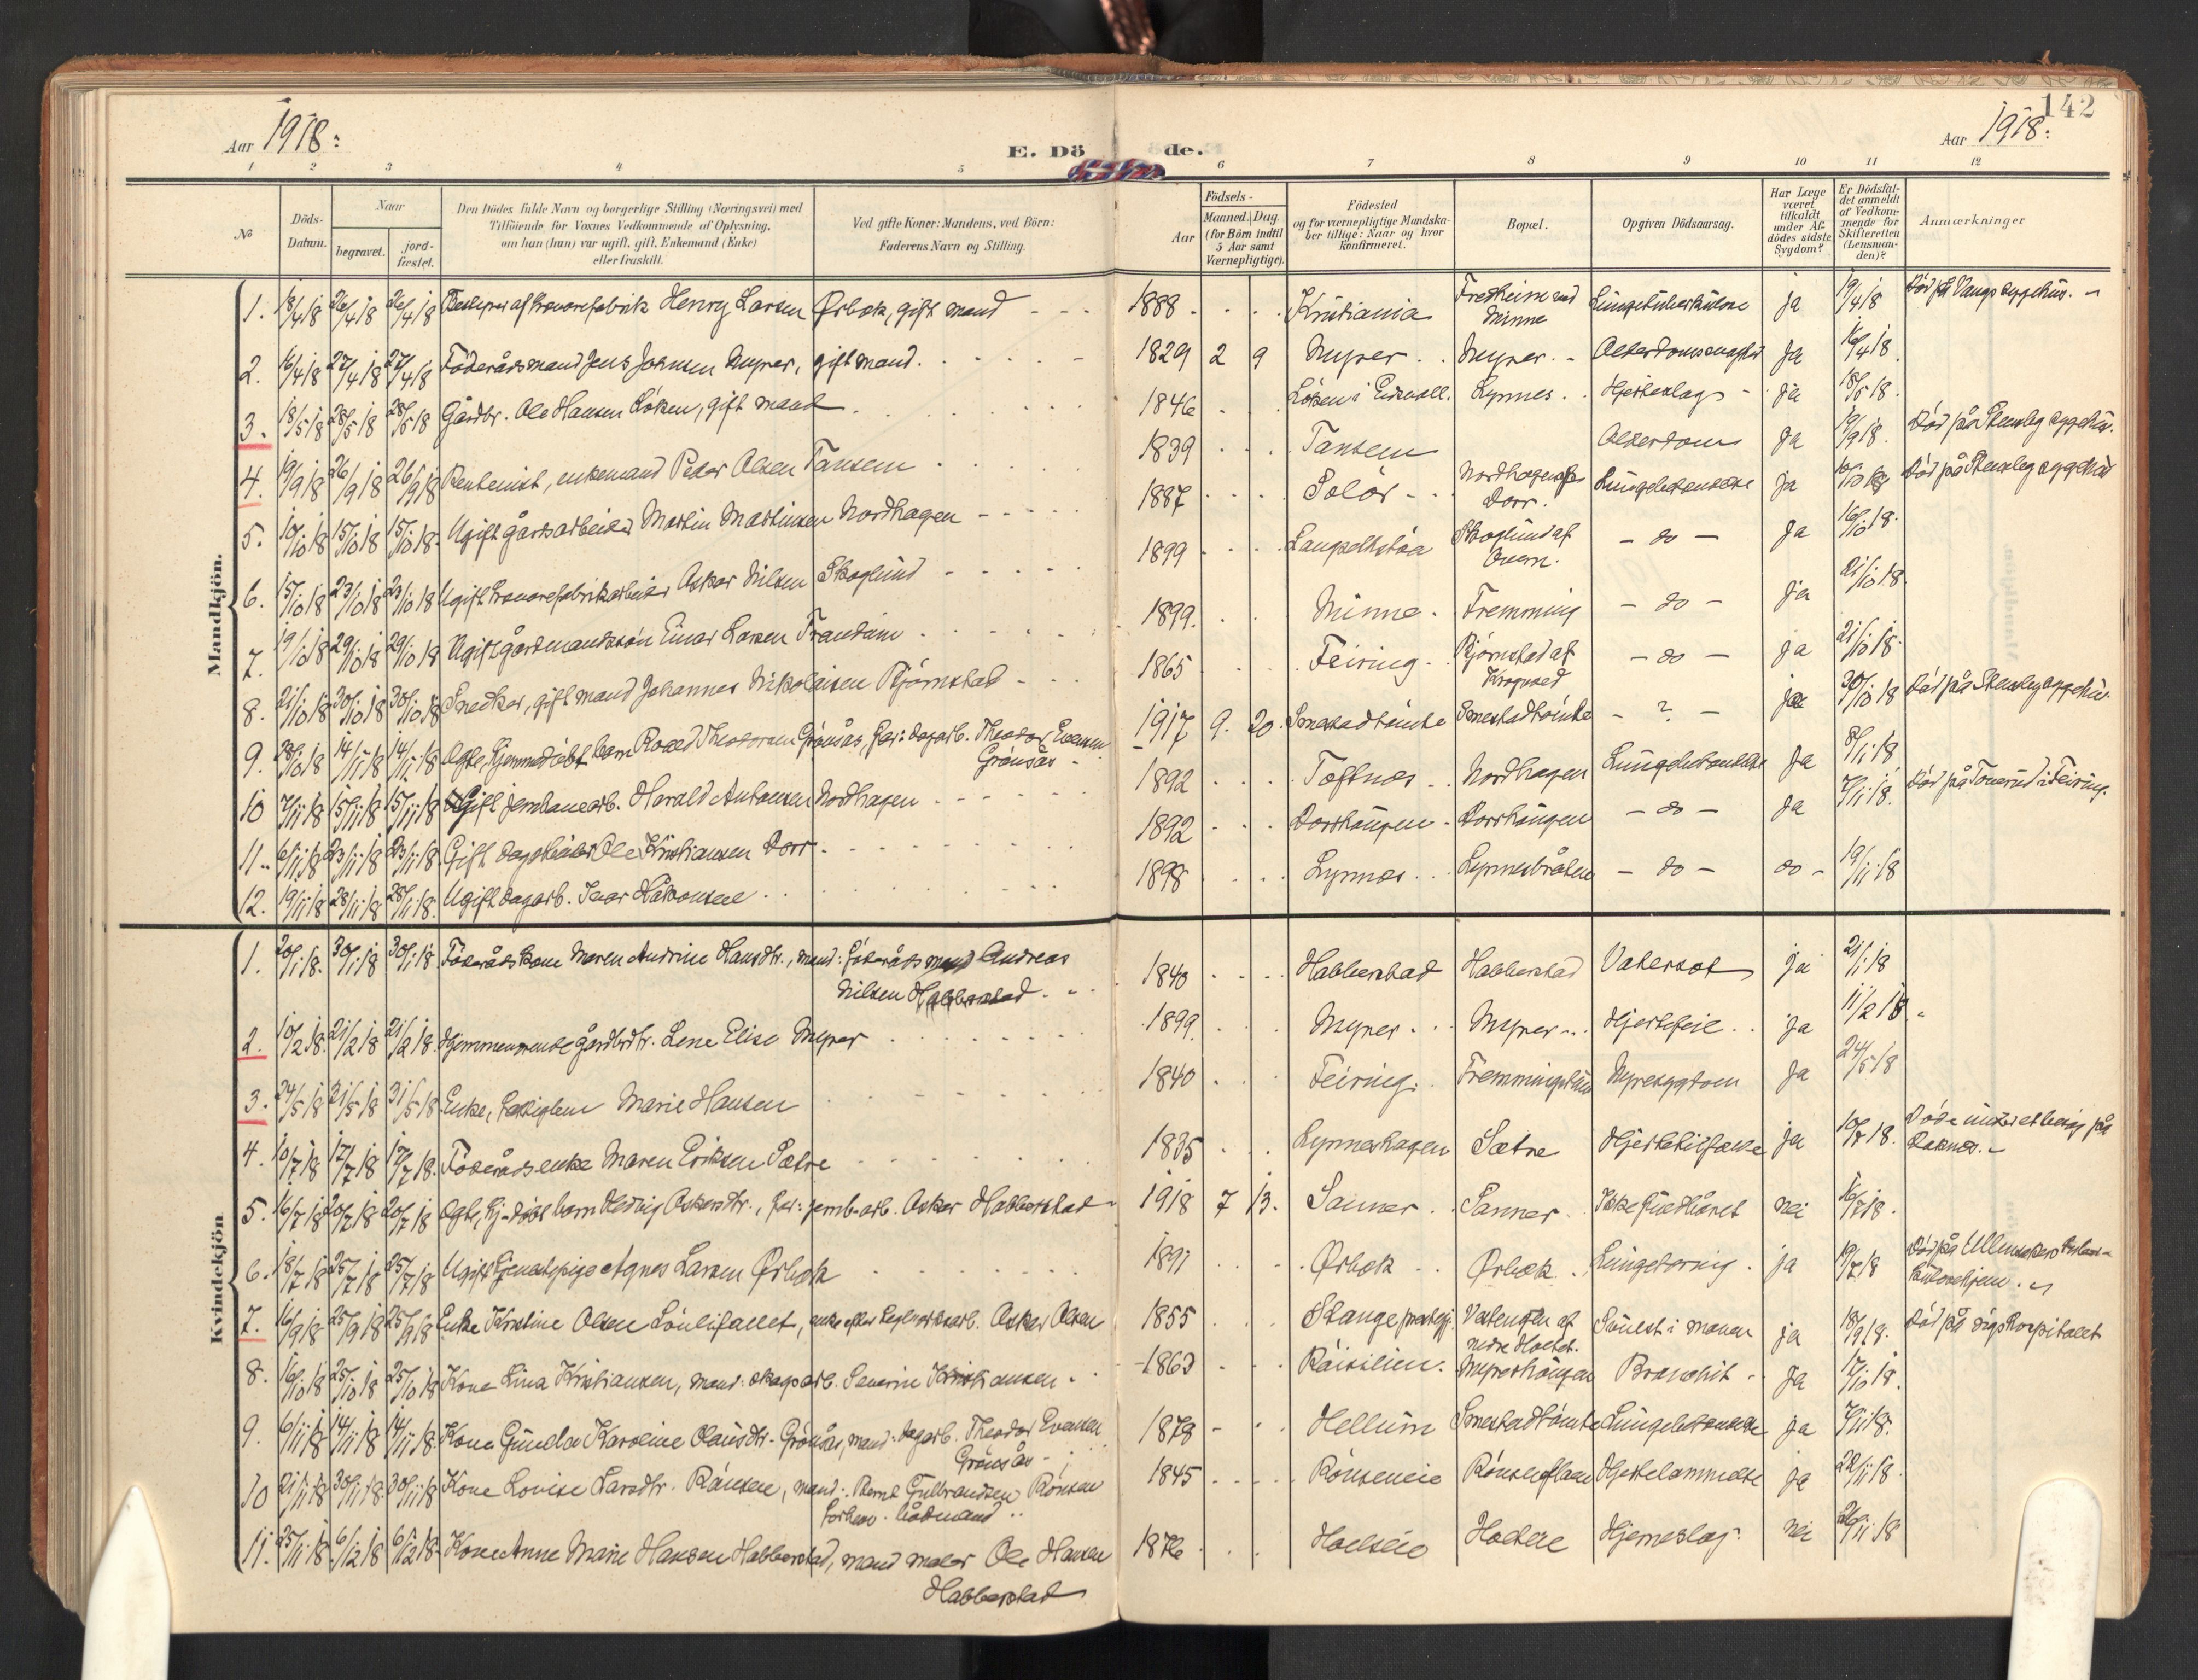 142
Aar 1918:
E. Dö
de.
Aar 1918:
1 2 3 4 5 6 7 8 9 10 11 12
No
Döds-
Datum.
Naar
begravet.
jord-
fæstet.
Den Dödes fulde Navn og borgerlige Stilling (Næringsvei) med
Tilföiende for Voxnes Vedkommende af Oplysning,
om han (hun) var ugift, gift, Enkemand (Enke)
eller fraskilt.
Ved gifte Koner: Mandens, ved Börn:
Faderens Navn og Stilling.
Födsels-
Aar
Maaned. Dag
(for Börn indtil
5 Aar samt
Værnepligtige).
Födested
og for værnepligtige Mandska-
ber tillige: Naar og hvor
konfirmeret.
Bopæl.
Opgiven Dödsaarsag.
Har Læge
været
tilkaldt
under Af-
dödes sidste
Sygdom?
Er Dödsfal-
det anmeldt
af Vedkom-
mende for
Skifteretten
(Lensman-
den)?
Anmærkninger
Mandkjön.
1. 18/4 18 26/4 18 26/4 18 Bestyrer af trævarefabrik Henry Larsen Ørbæk, gift mand 1888 Kristiania Fredheim ved Minne Lungetuberkulose ja 19/4 18 Död på Vangs sygehus.
2. 16/4 18 27/4 18 27/4 18 Föderådsmand Jens Johnsen Myrer, gift mand. 1829 2 9 Myrer Myrer Ja 16/4 18
3. 18/5 18 28/5 18 28/5 18 Gårdbr. Ole Hansen Löken, gift mand 1846 Löken i Eidsvoll. Lynnes Hjerteslag ja 18/5 18.
4. 19/9 18 26/9 18 26/9 18 Rentenist, enkemand Peder Olsen Tansem 1839 Tansem Alderdom Ja 19/9 18. Död på Stensby sygehus.
5. 10/10 18 15/10 18 15/10 18 Ugift gårdsarbeider Martin Martinsen Nordhagen 1887 Solör Nordhagen af Dorr. Lungebetændelse ja 10/10 18 Död på Stensby sygehus
6. 15/10 18 23/10 18 23/10 18 Ugift trævarefabrikarbeider Asker Nilsen Skoglund 1899 Skoglund af - do - Ja 16/10 18.
7. 19/10 18 29/10 18 29/10 18 Ugift gårdmandssön Einar Larsen Trandum 1899. Minne Fremming - do - ja 21/10 18
8. 21/10 18 30/10 18 30/10 18 Snedker, gift mand Johannes Nikolaisen Björnstad 1865 Feiring Björnstad af Krogsved - do - ja 21/10 18.
9. 28/10 18 14/11 18 14/11 18 Ægte, hjemmedöbt barn Roald Theodorsen Grönsås, far: dagarb. Theodor Evensen
Grönsås 1917 9. 20. Smestadtomte Smestadtomte - ? - ja 30/10 18 Död på Stensby sygehus.
10 7/11 18 15/11 18 15/11 18 Ugift jernbanearb. Harald Antonsen Nordhagen 1892 Toftnes Nordhagen Lungebetændelse Ja 8/11 18
11. 6/11 18 23/11 18 23/11 18 Gift dagarbeider Ole Kristiansen Dorr 1892 Dorrhaugen Dorrhaugen - do - Ja 7/11 18. Död på Tønsrud i Feiring.
12. 19/11 18 28/11 18 28/11 18. Ugift dagarb. Ivar Håkonsen 1898 Lynnes Lynnesbråten - do - do - 19/11 18
Kvindekjön
1. 20/1 18. 30/1 18 30/1 18 Föderådskone Maren Andrine Hansdtr., mand: föderådsmand Andreas
Nilsen Habberstad 1840 Habberstad Habberstad Vatersot ja 21/1 18
2. 10/2 18. 21/2 18 21/2 18. Hjemmeværende gårdbrdtr. Lene Elise Myrer 1899 Myrer Myrer Hjertefeil ja 11/2 18.
3. 24/5 18 31/5 18 31/5 18. Enke, fattiglem Marie Hansen 1840 Feiring Nyresygdom Ja 24/5 18
4. 10/7 18 17/7 18 17/7 18. Föderådsenke Maren Eriksen Sætre 1835 Lynneshagen Sætre ja 10/7 18. Döde under et besög på
5. 16/7 18 20/7 18 20/7 18 Ægte, hj-döbt barn Hedvig Askersdtr., far: jernb-arb. Asker Habberstad 1918 7 13. Sanner Sanner Ikke fuldbåret nei 16/7 18.
6. 18/7 18 25/7 18 25/7 18 Ugift tjenestepige Agnes Larsen Ørbæk 1891 Ørbæk Ørbæk Lungetæring ja 19/7 18 Död på Ullensakers tuber-
kulosehjem.
7. 16/9 18 25/9 18 25/9 18 Enke Kristine Olsen Lönlifallet, enke efter teglverksarb. Asker Olsen 1855 Stange prestegj. ja 18/9 18. Död på rigshospitalet
8. 16/10 18 25/10 18 25/10 18 Kone Lina Kristiansen, mand: skogsarb. Severin Kristiansen 1863 Myrerhaugen Ja 17/10 18.
9. 6/11 18 14/11 18 14/11 18. Kone Gunda Karoline Olausdtr. Grönsås, mand: dagarb. Theodor Evensen
Grönsås 1878 Hellum Smestadtomte Lungebetændelse ja 7/11 18.
10 21/11 18 30/11 18. 30/11 18 Kone Lovise Larsdtr. Rönsen, mand: Bernt Gulbrandsen Rönsen
forhen. bådmand 1845 Rönseneie Hjertelammelse ja 22/11 18.
11. 25/11 18. 6/12 18 6/12 18. Kone Anne Marie Hansen Habberstad, mand maler Ole Hansen
Habberstad 1876 Hjerneslag nei 26/11 18